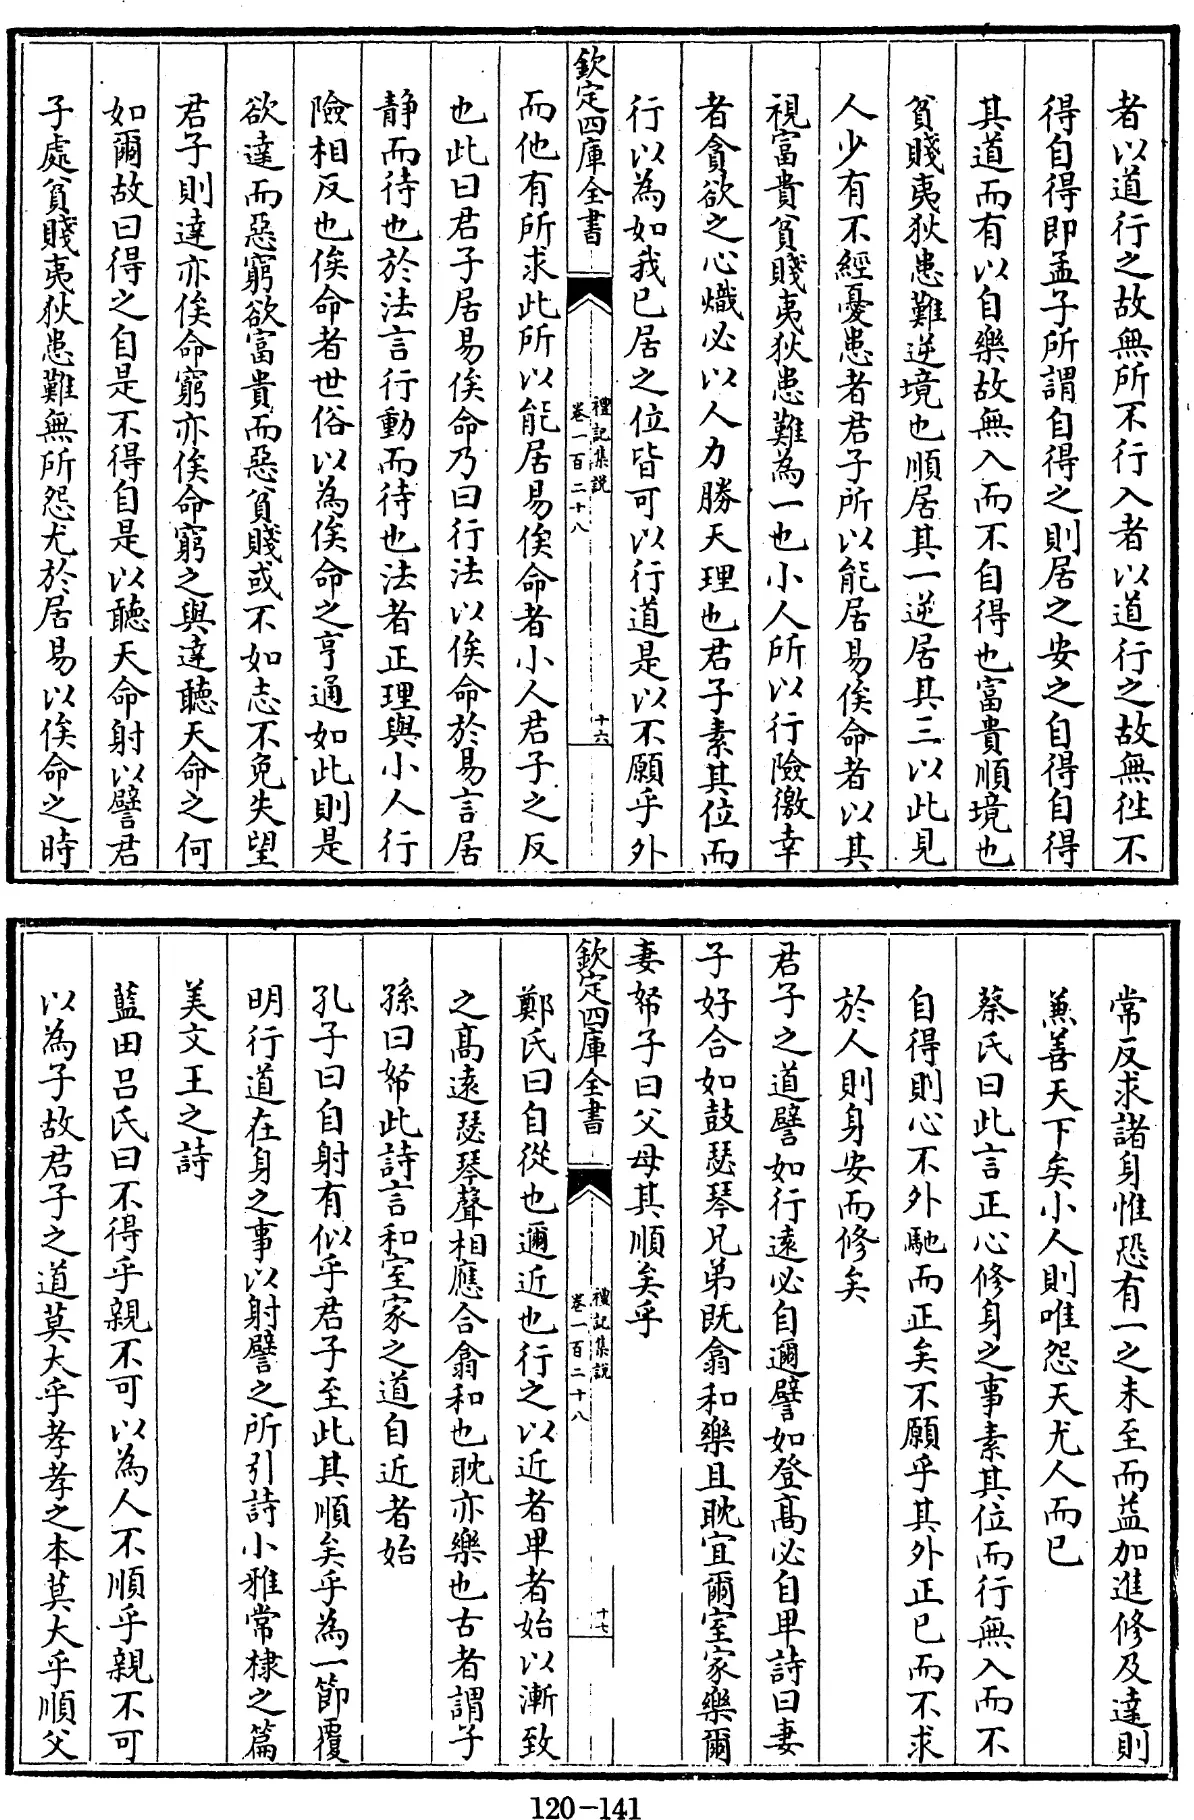 者以道行之故無所不行入者以道行之故無徃不
得自得即孟子所謂自得之則居之安之自得自得
其道而有以自樂故無入而不自得也富貴順境也
貧賤夷狄患難逆境也順居其一逆居其三以此見
人少有不經憂患者君子所以能居易俟命者以其
視富貴貧賤夷狄患難為一也小人所以行險徼幸
者貪欲之心熾必以人力勝天理也君子素其位而
行以為如我已居之位皆可以行道是以不願乎外
欽定四庫全書
禮記集説
卷一百二十八
十六
而他有所求此所以能居易俟命者小人君子之反
也此曰君子居易俟命乃曰行法以俟命於易言居
静而待也於法言行動而待也法者正理與小人行
險相反也俟命者世俗以為俟命之亨通如此則是
欲達而惡窮欲富貴而惡貧賤或不如志不免失望
君子則達亦俟命窮亦俟命窮之與達聽天命之何
如爾故曰得之自是不得自是以聽天命射以譬君
子處貧賤夷狄患難無所怨尤於居易以俟命之時
常反求諸身惟恐有一之未至而益加進修及達則
兼善天下矣小人則唯怨天尤人而已
蔡氏曰此言正心修身之事素其位而行無入而不
自得則心不外馳而正矣不願乎其外正已而不求
於人則身安而修矣
君子之道譬如行逺必自邇譬如登髙必自卑詩曰妻
子好合如鼓瑟琴兄弟既翕和樂且耽宜爾室家樂爾
妻帑子曰父母其順矣乎
欽定四庫全書
禮記集説
卷一百二十八
十七
鄭氏曰自從也邇近也行之以近者卑者始以漸致
之髙逺瑟琴聲相應合翕和也耽亦樂也古者謂子
孫曰帑此詩言和室家之道自近者始
孔子曰自射有似乎君子至此其順矣乎為一節覆
明行道在身之事以射譬之所引詩小雅常棣之篇
美文王之詩
藍田吕氏曰不得乎親不可以為人不順乎親不可
以為子故君子之道莫大乎孝孝之本莫大乎順父
120-141